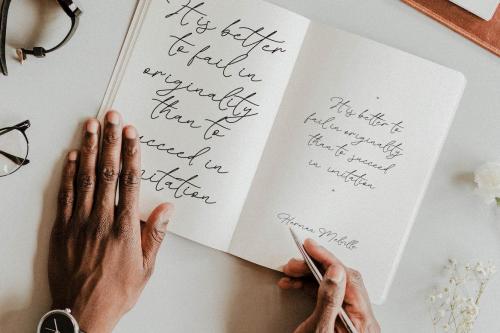 It is better
to fail in
originality
than to
succeed in
imitation
It is better to
fail in originality
than to succeed
in imitation
Herman Melville